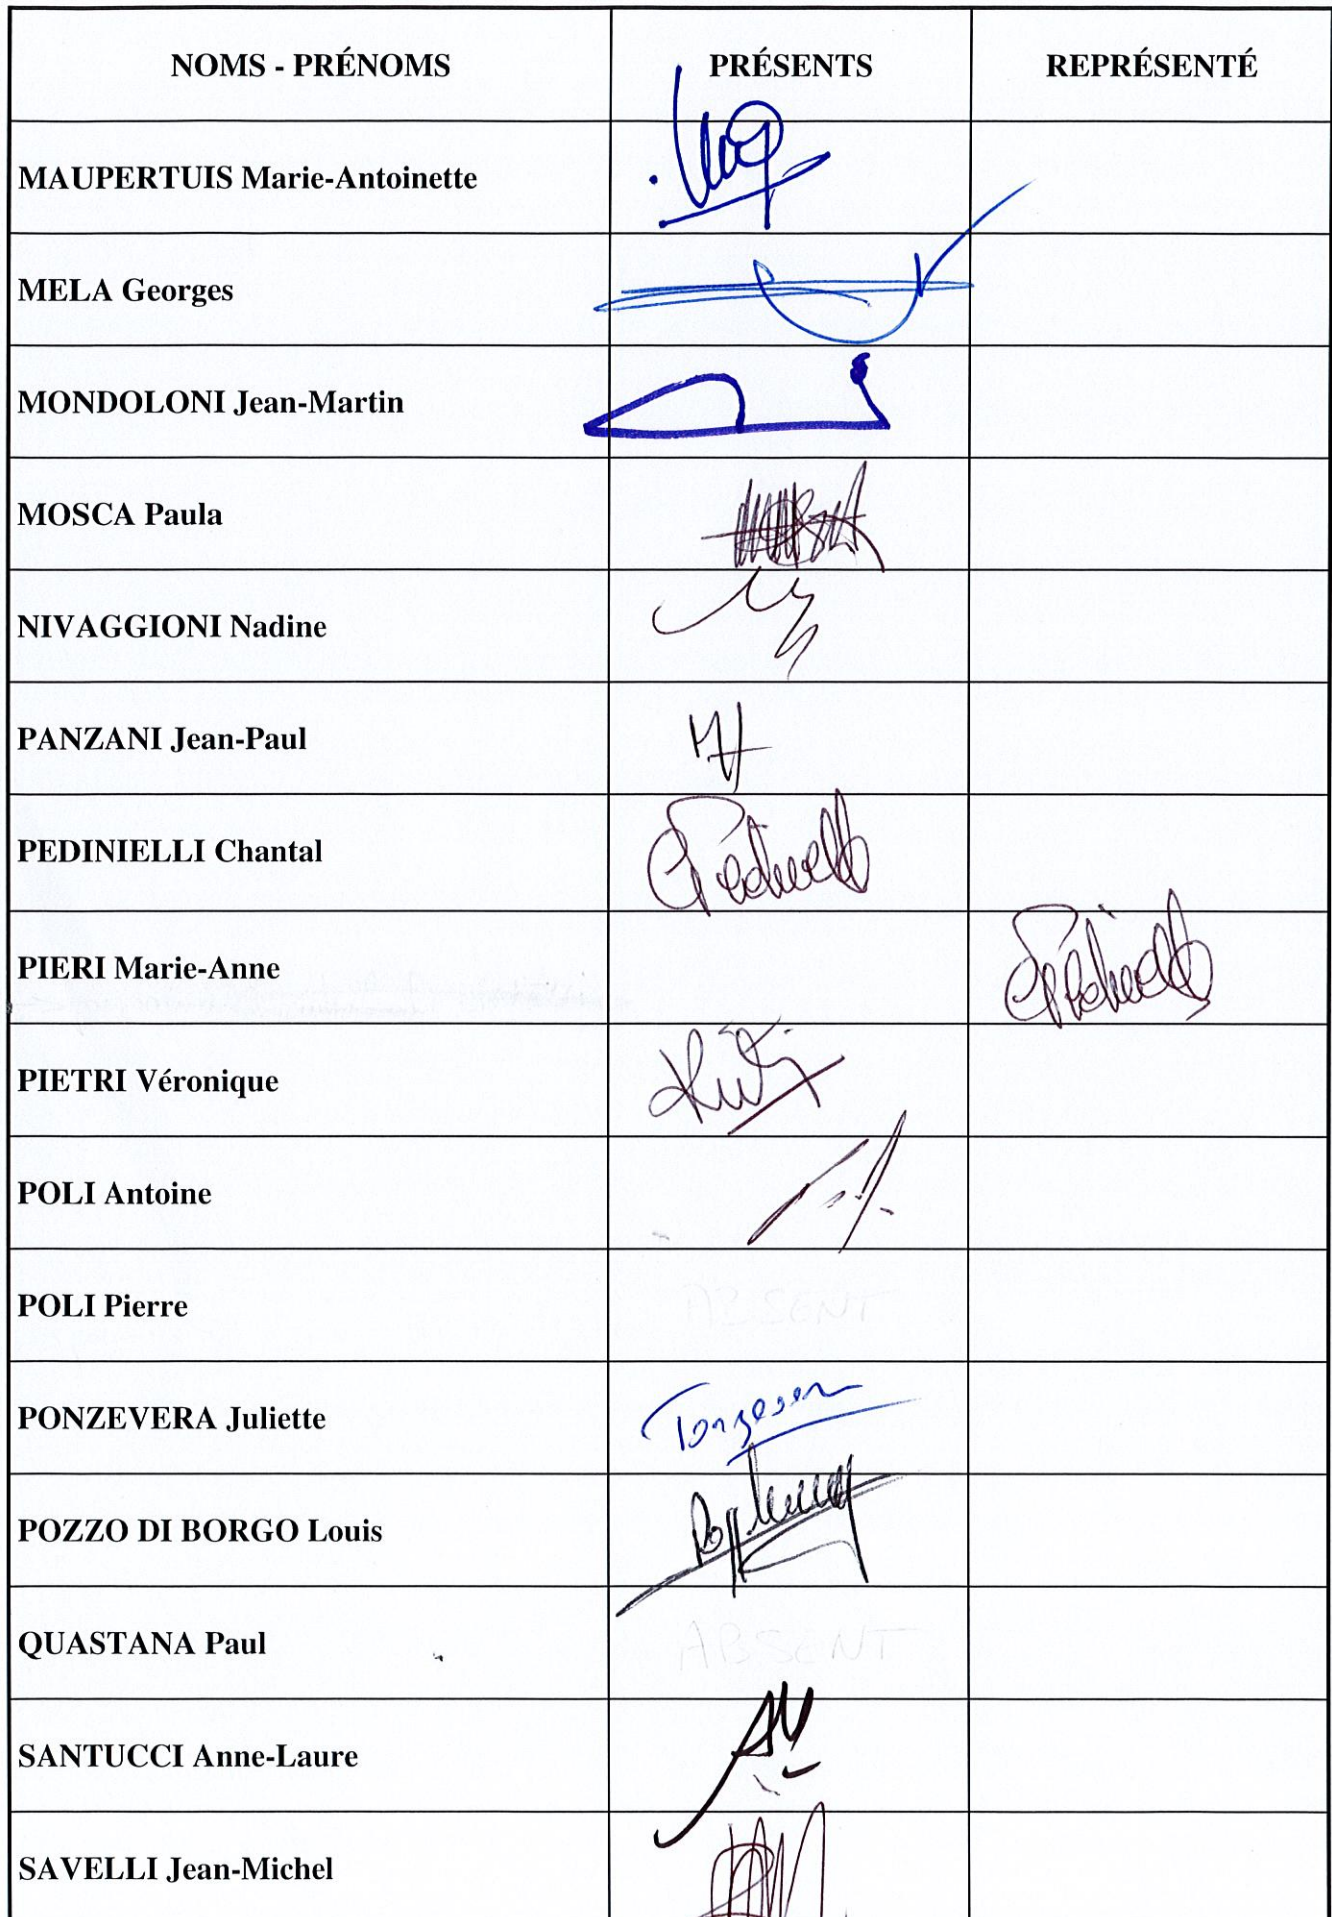 NOMS - PRÉNOMS PRÉSENTS REPRÉSENTÉ
MAUPERTUIS Marie-Antoinette
MELA Georges
MONDOLONI Jean-Martin
MOSCA Paula
NIVAGGIONI Nadine
PANZANI Jean-Paul
PEDINIELLI Chantal
PIERI Marie-Anne
PIETRI Véronique
POLI Antoine
POLI Pierre ABSENT
PONZEVERA Juliette
POZZO DI BORGO Louis
QUASTANA Paul ABSENT
SANTUCCI Anne-Laure
SAVELLI Jean-Michel